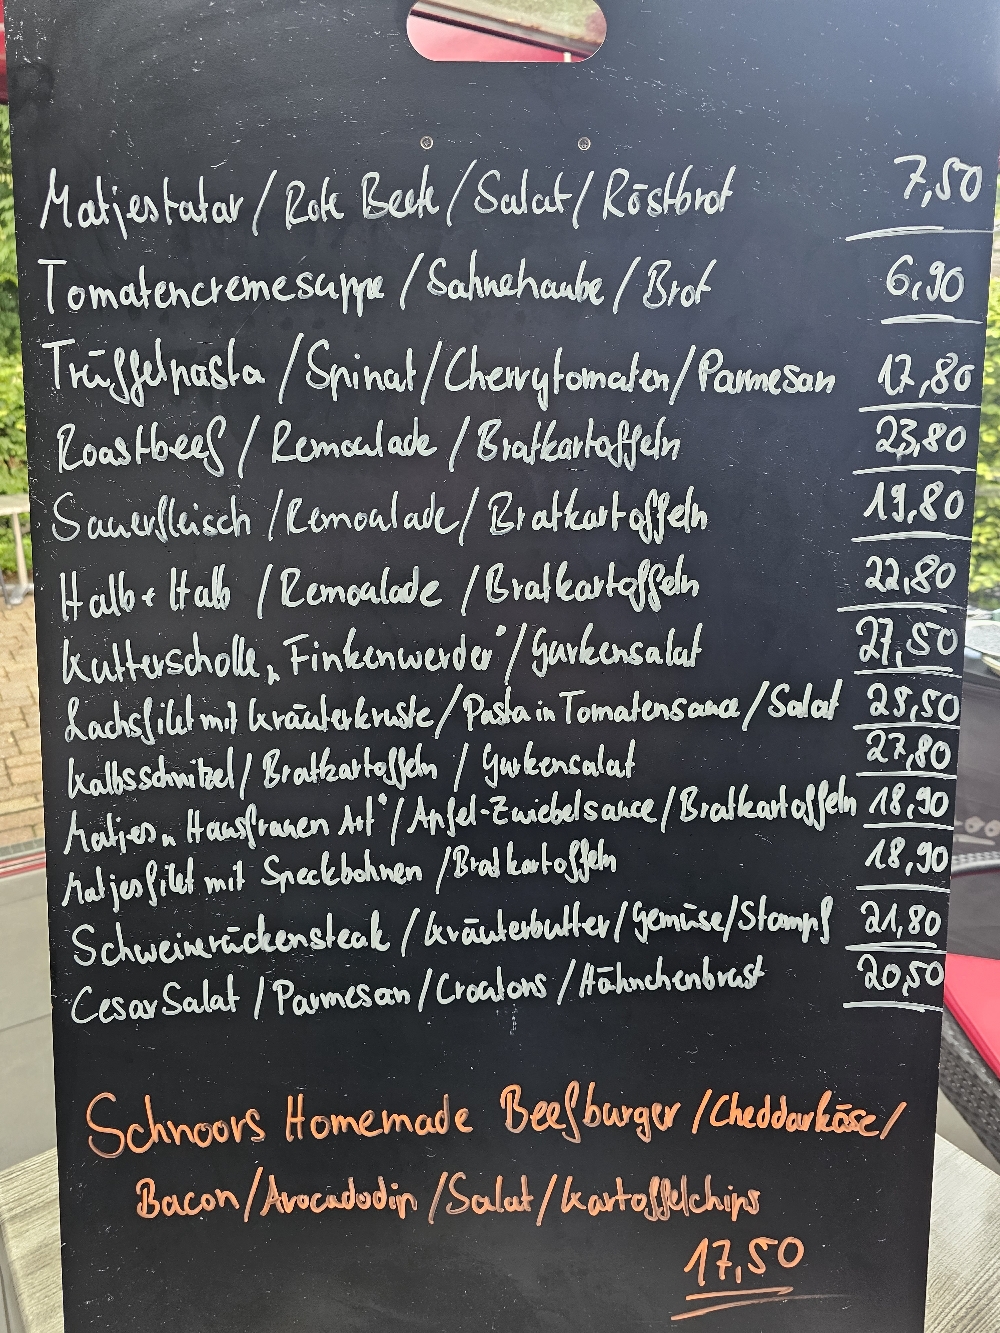 Matjestatar / Rote Beete / Salat / Röstbrot 7,50
Tomatencremesuppe / Sahnehaube / Brot 6,90
Trüffelpasta / Spinat / Cherrytomaten / Parmesan 17,80
Roastbeef / Remoulade / Bratkartoffeln 23,80
Sauerfleisch / Remoulade / Bratkartoffeln 19,80
Halb + Halb / Remoulade / Bratkartoffeln 22,80
Kutterscholle „Finkenwerder" / Gurkensalat 27,50
Lachsfilet mit Kräuterkruste / Pasta in Tomatensauce / Salat 25,50
Kalbsschnitzel / Bratkartoffeln / Gurkensalat 27,80
Matjes „Hausfrauen Art" / Apfel-Zwiebelsauce / Bratkartoffeln 18,90
Matjesfilet mit Speckbohnen / Bratkartoffeln 18,90
Schweinerückensteak / Kräuterbutter / Gemüse / Stampf 21,80
Cesar Salat / Parmesan / Croutons / Hähnchenbrust 20,50
Schnoors Homemade Beefburger / Cheddarkäse /
Bacon / Avocadodip / Salat / Kartoffelchips
17,50